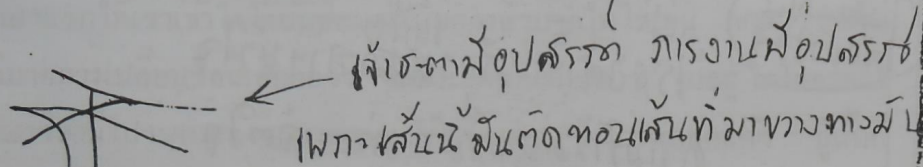 เจ้าชะตามีอุปสรรค การงานมีอุปสรรค
เพราะเส้นนี้มันตัดทอนเส้นที่มาขวางทางมัน